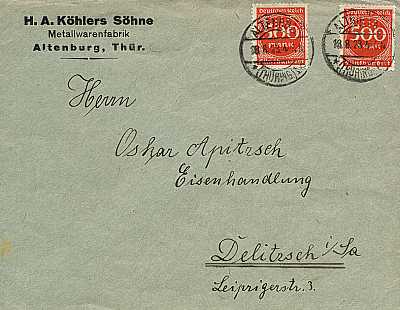 H. A. Köhlers Söhne
Metallwarenfabrik
Altenburg, Thür.
Deutsches Reich
500
MARK
Deutsches Reich
500
ALTENBURG
(THÜRING.)
Herrn
Oskar Apitzsch
Eisenhandlung
Delitzsch i/Sa
Leipzigerstr. 3.